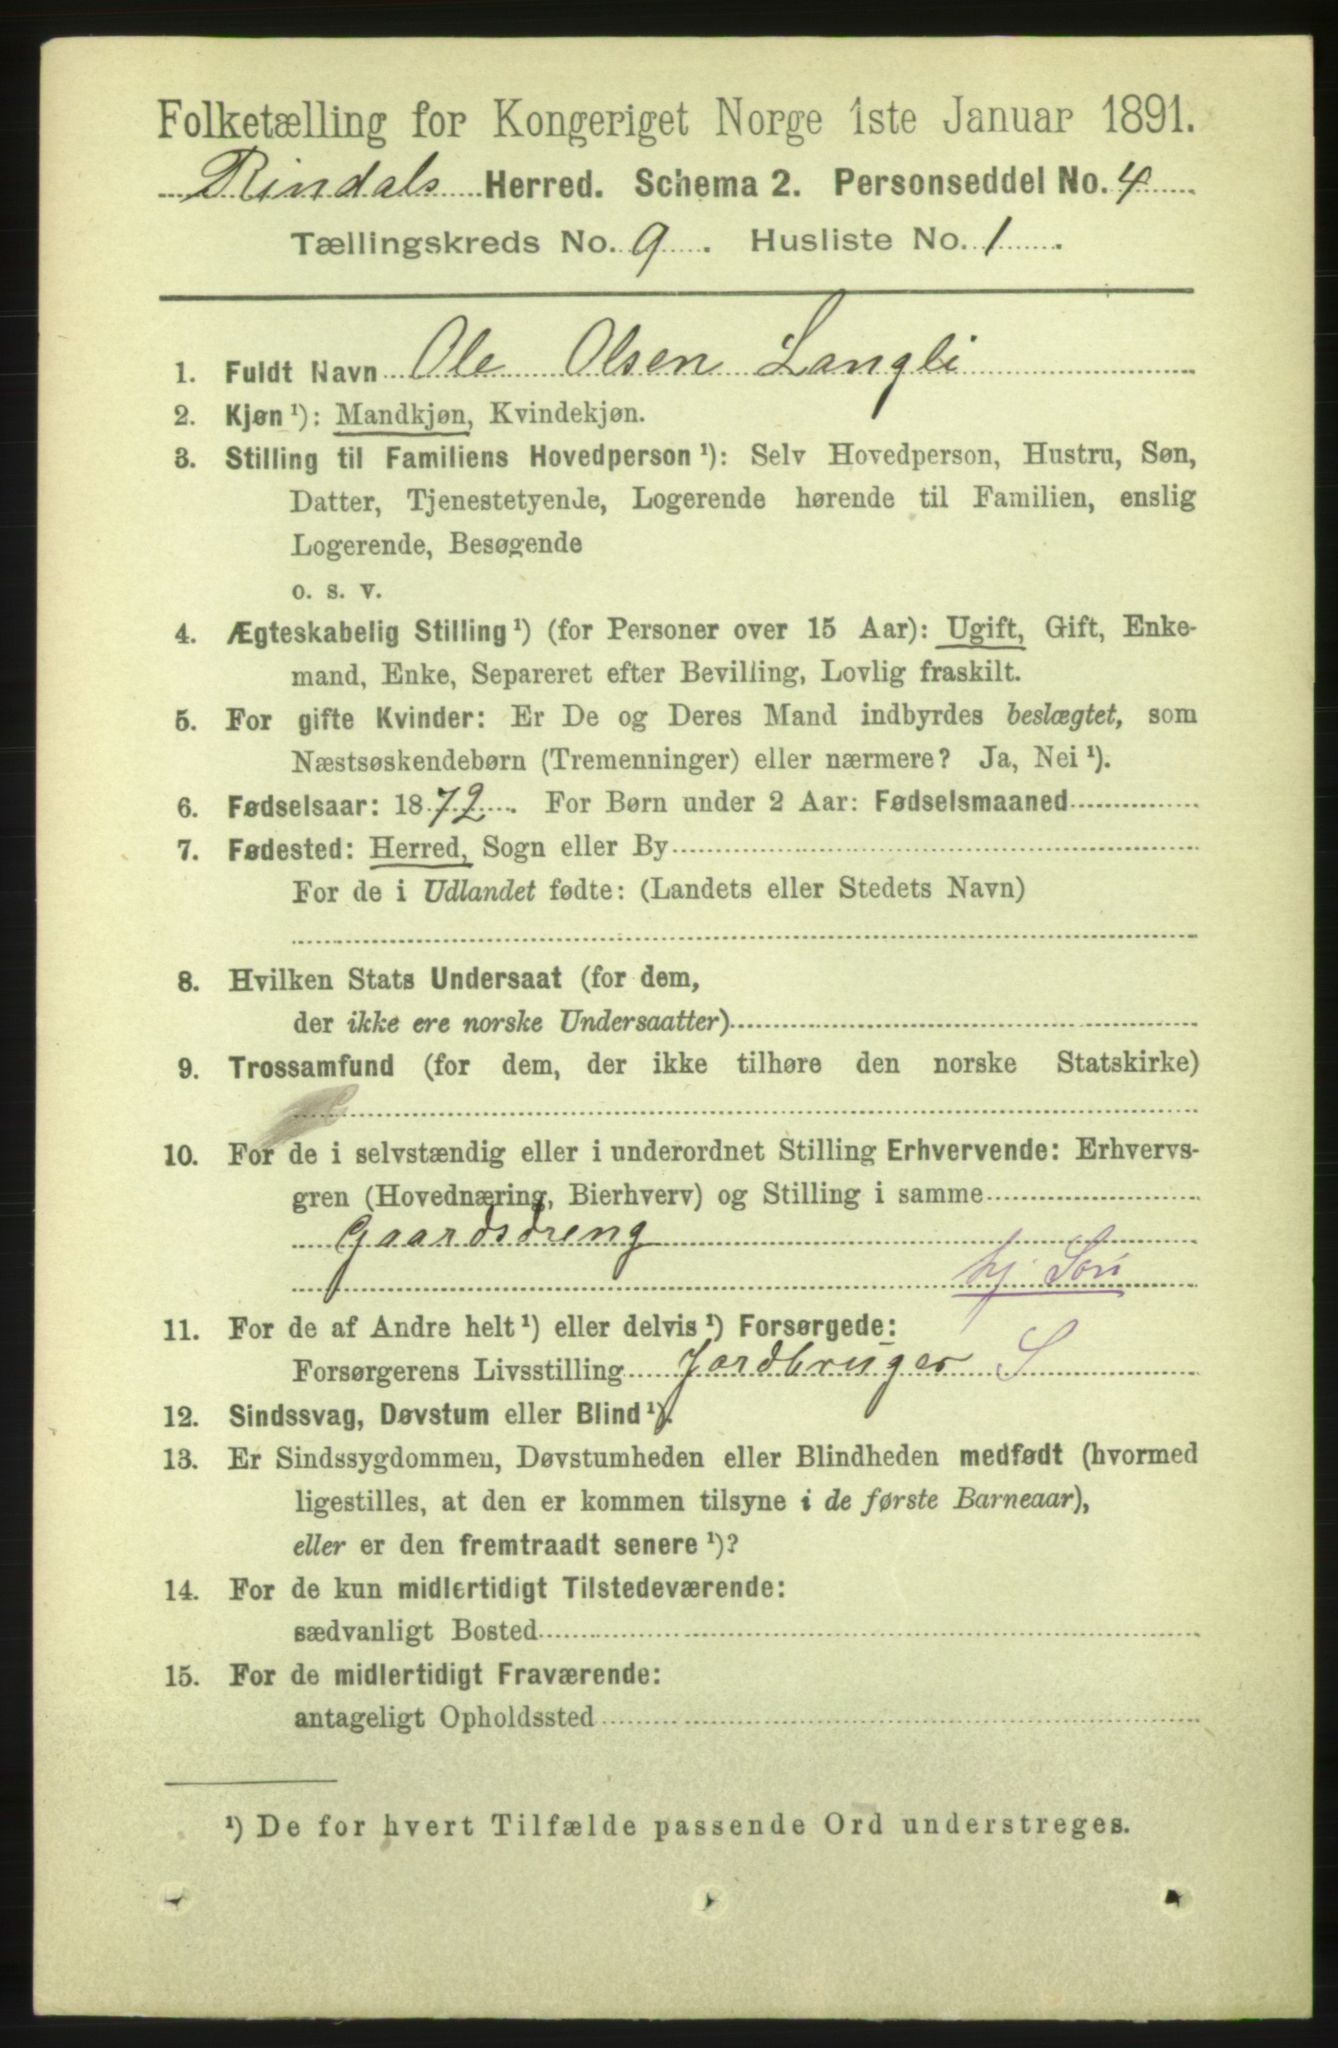 Folketælling for Kongeriget Norge 1ste Januar 1891.
Rindals Herred. Schema 2. Personseddel No. 4
Tællingskreds No. 9. Husliste No. 1.
1. Fuldt Navn Ole Olsen Langli
2. Kjøn ¹): Mandkjøn, Kvindekjøn.
3. Stilling til Familiens Hovedperson ¹): Selv Hovedperson, Hustru, Søn,
Datter, Tjenestetyende, Logerende hørende til Familien, enslig
Logerende, Besøgende
o. s. v.
4. Ægteskabelig Stilling ¹) (for Personer over 15 Aar): Ugift, Gift, Enke-
mand, Enke, Separeret efter Bevilling, Lovlig fraskilt.
5. For gifte Kvinder: Er De og Deres Mand indbyrdes beslægtet, som
Næstsøskendebørn (Tremenninger) eller nærmere? Ja, Nei ¹).
6. Fødselsaar: 1872. For Børn under 2 Aar: Fødselsmaaned
7. Fødested: Herred, Sogn eller By
For de i Udlandet fødte: (Landets eller Stedets Navn)
8. Hvilken Stats Undersaat (for dem,
der ikke ere norske Undersaatter)
9. Trossamfund (for dem, der ikke tilhøre den norske Statskirke)
10. For de i selvstændig eller i underordnet Stilling Erhvervende: Erhvervs-
gren (Hovednæring, Bierhverv) og Stilling i samme
Gaardsdreng
hj. Søn
11. For de af Andre helt ¹) eller delvis ¹) Forsørgede:
Forsørgerens Livsstilling Jordbruger S
12. Sindssvag, Døvstum eller Blind ¹).
13. Er Sindssygdommen, Døvstumheden eller Blindheden medfødt (hvormed
ligestilles, at den er kommen tilsyne i de første Barneaar),
eller er den fremtraadt senere ¹)?
14. For de kun midlertidigt Tilstedeværende:
sædvanligt Bosted
15. For de midlertidigt Fraværende:
antageligt Opholdssted
¹) De for hvert Tilfælde passende Ord understreges.